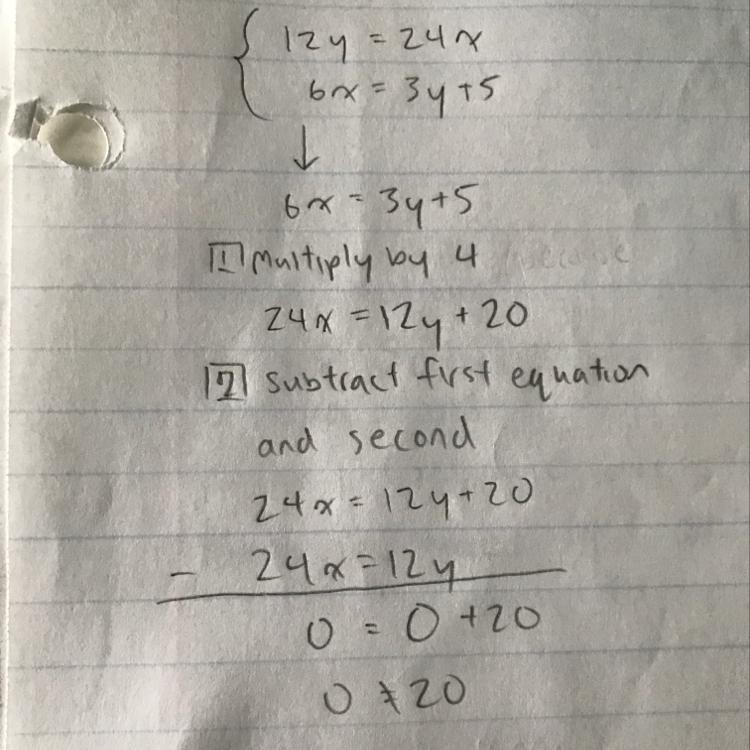 12y = 24x
6x = 3y+5
↓
6x = 3y+5
1 Multiply by 4
24x = 12y + 20
2 subtract first equation
and second
24x = 12y+20
- 24x = 12y
0 = 0 +20
0 ≠ 20